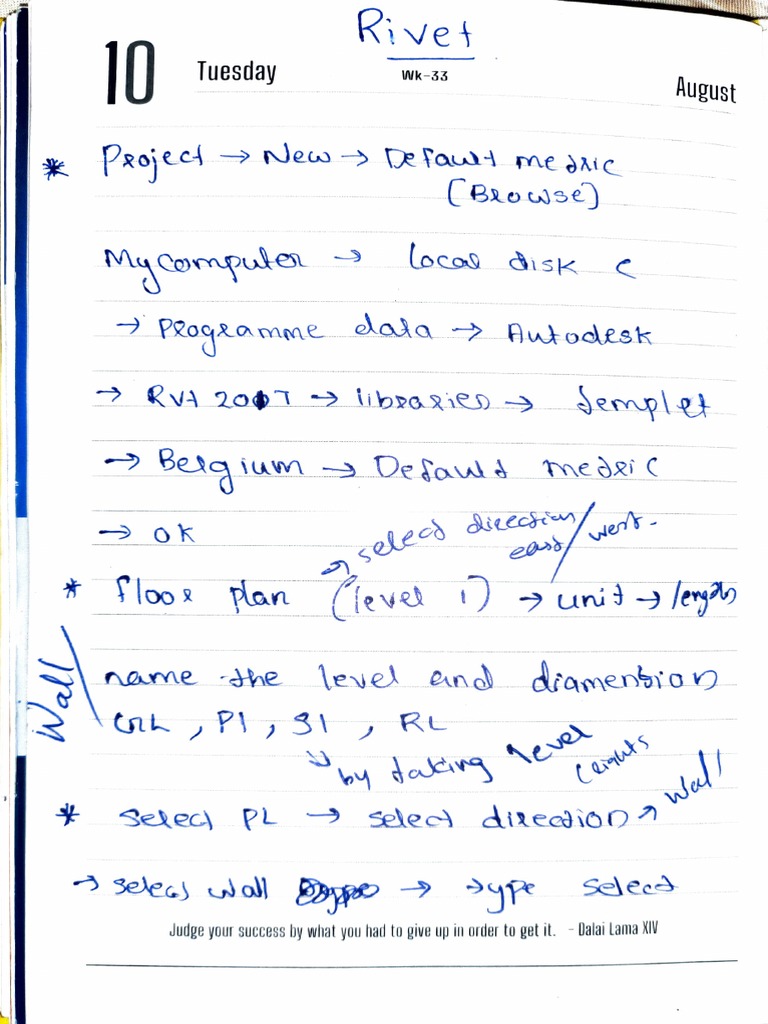 Rivet
10 Tuesday Wk-33 August
* Project → New → Default metric
(Browse)
My computer → local disk C
→ Programme data → Autodesk
→ RVT 2017 → libraries → templet
→ Belgium → Default metric
→ OK
→ select direction
east/west.
* floor plan (level 1) → unit → length
Wall
name the level and diamension
GL, Pl, Sl, RL
by taking level
* Select PL → select direction → wall
→ select wall → type select
Judge your success by what you had to give up in order to get it. - Dalai Lama XIV